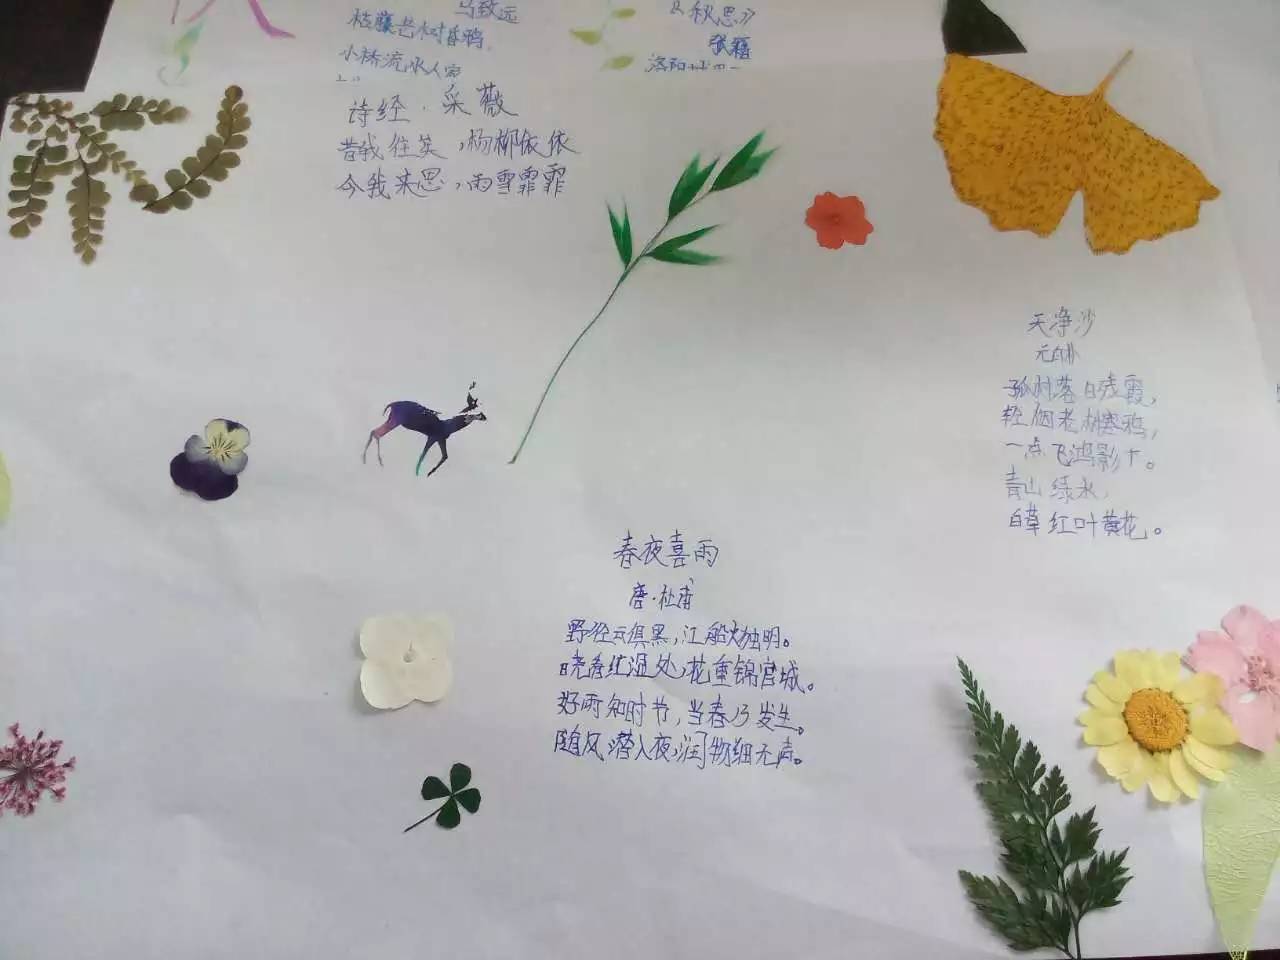 马致远
枯藤老树昏鸦
小桥流水人家
《秋思》
张籍
洛阳城
诗经·采薇
昔我往矣,杨柳依依
今我来思,雨雪霏霏
天净沙
元白朴
孤村落日残霞,
轻烟老树寒鸦,
一点飞鸿影下。
青山绿水,
白草红叶黄花。
春夜喜雨
唐·杜甫
野径云俱黑,江船火独明。
晓看红湿处,花重锦官城。
好雨知时节,当春乃发生。
随风潜入夜,润物细无声。